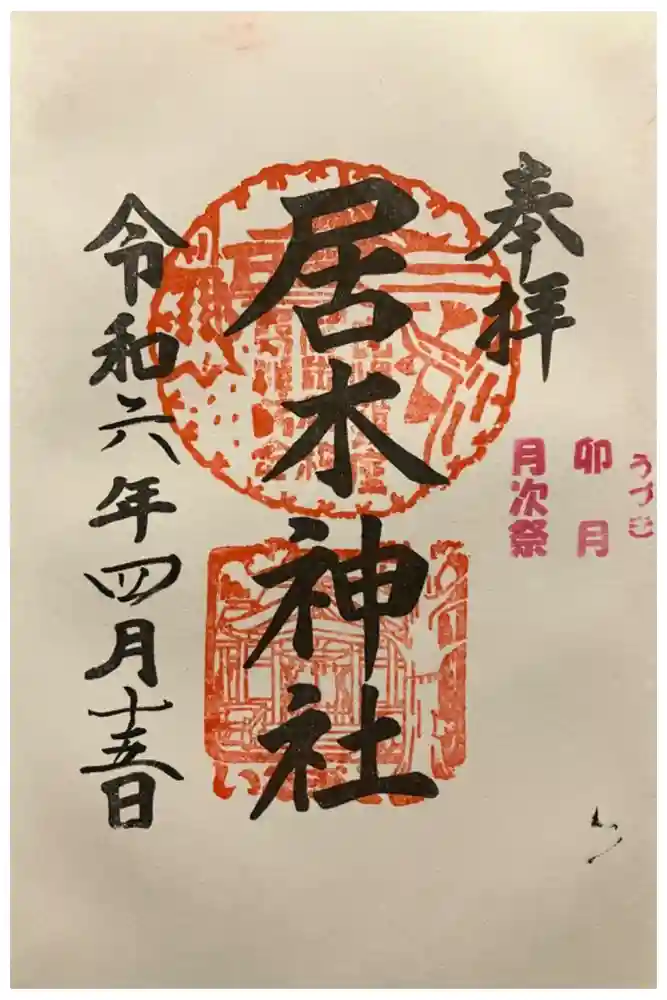 奉拝
うづき
卯月
月次祭
居木神社
い
令和六年四月十五日